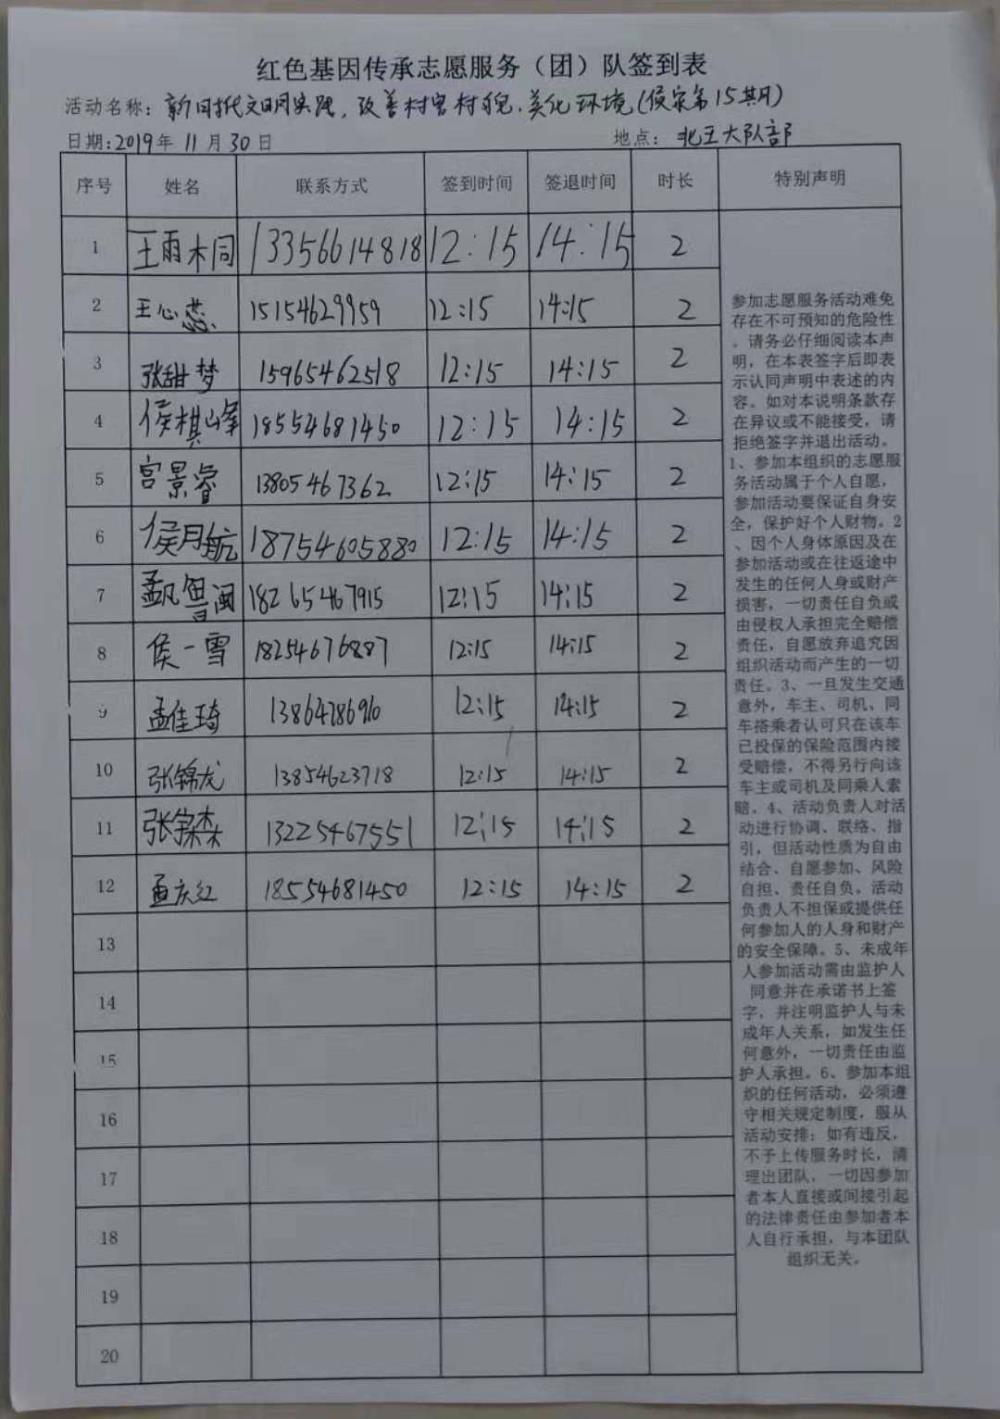 红色基因传承志愿服务（团）队签到表
活动名称：新时代文明实践，改善村容村貌，美化环境（侯家第15期）
日期：2019年 11月 30日 地点：北王大队部
序号 姓名 联系方式 签到时间 签退时间 时长 特别声明
1 王雨桐 13356614818 12:15 14:15 2
2 王心蕊 15154629959 12:15 14:15 2
3 张甜梦 15965462518 12:15 14:15 2
4 侯棋峰 18554681450 12:15 14:15 2
5 宫景睿 13805467362 12:15 14:15 2
6 侯月航 18754605880 12:15 14:15 2
7 孟凡 18265467915 12:15 14:15 2
8 侯一雪 18254676887 12:15 14:15 2
9 孟佳琦 1386428 12:15 14:15 2
10 张锦龙 13854623718 12:15 14:15 2
11 张 13225467551 12:15 14:15 2
12 孟庆红 18554681450 12:15 14:15 2
13
14
15
16
17
18
19
20
参加志愿服务活动难免
存在不可预知的危险性
，请务必仔细阅读本声
明，在本表签字后即表
示认同声明中表述的内
容。如对本说明条款存
在异议或不能接受，请
拒绝签字并退出活动。
1、参加本组织的志愿服
务活动属于个人自愿，
参加活动要保证自身安
全，保护好个人财物。2
、因个人身体原因及在
参加活动或在往返途中
发生的任何人身或财产
损害，一切责任自负或
由侵权人承担完全赔偿
责任，自愿放弃追究因
组织活动而产生的一切
责任。3、一旦发生交通
意外，车主、司机、同
车搭乘者认可只在该车
已投保的保险范围内接
受赔偿，不得另行向该
车主或司机及同乘人索
赔。4、活动负责人对活
动进行协调、联络、指
引，但活动性质为自由
结合、自愿参加、风险
自担、责任自负，活动
负责人不担保或提供任
何参加人的人身和财产
的安全保障。5、未成年
人参加活动需由监护人
同意并在承诺书上签
字，并注明监护人与未
成年人关系，如发生任
何意外，一切责任由监
护人承担。6、参加本组
织的任何活动，必须遵
守相关规定制度，服从
活动安排；如有违反，
不予上传服务时长，清
理出团队，一切因参加
者本人直接或间接引起
的法律责任由参加者本
人自行承担，与本团队
组织无关。